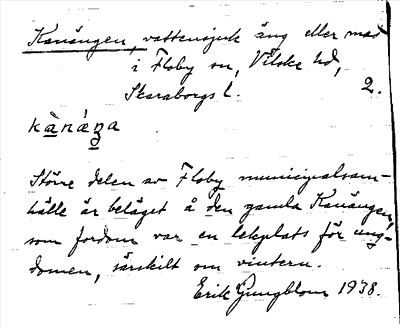 Kanängen, vattensjuk äng eller mad
i Floby sn, Vilske hd,
Skaraborgs l. 2.
kànáŋa
Större delen av Floby municipalsam-
hälle är beläget å den gamla Kanängen,
som fordom var en lekplats för ung-
domen, särskilt om vintern.
Erik Ljungblom 1938.